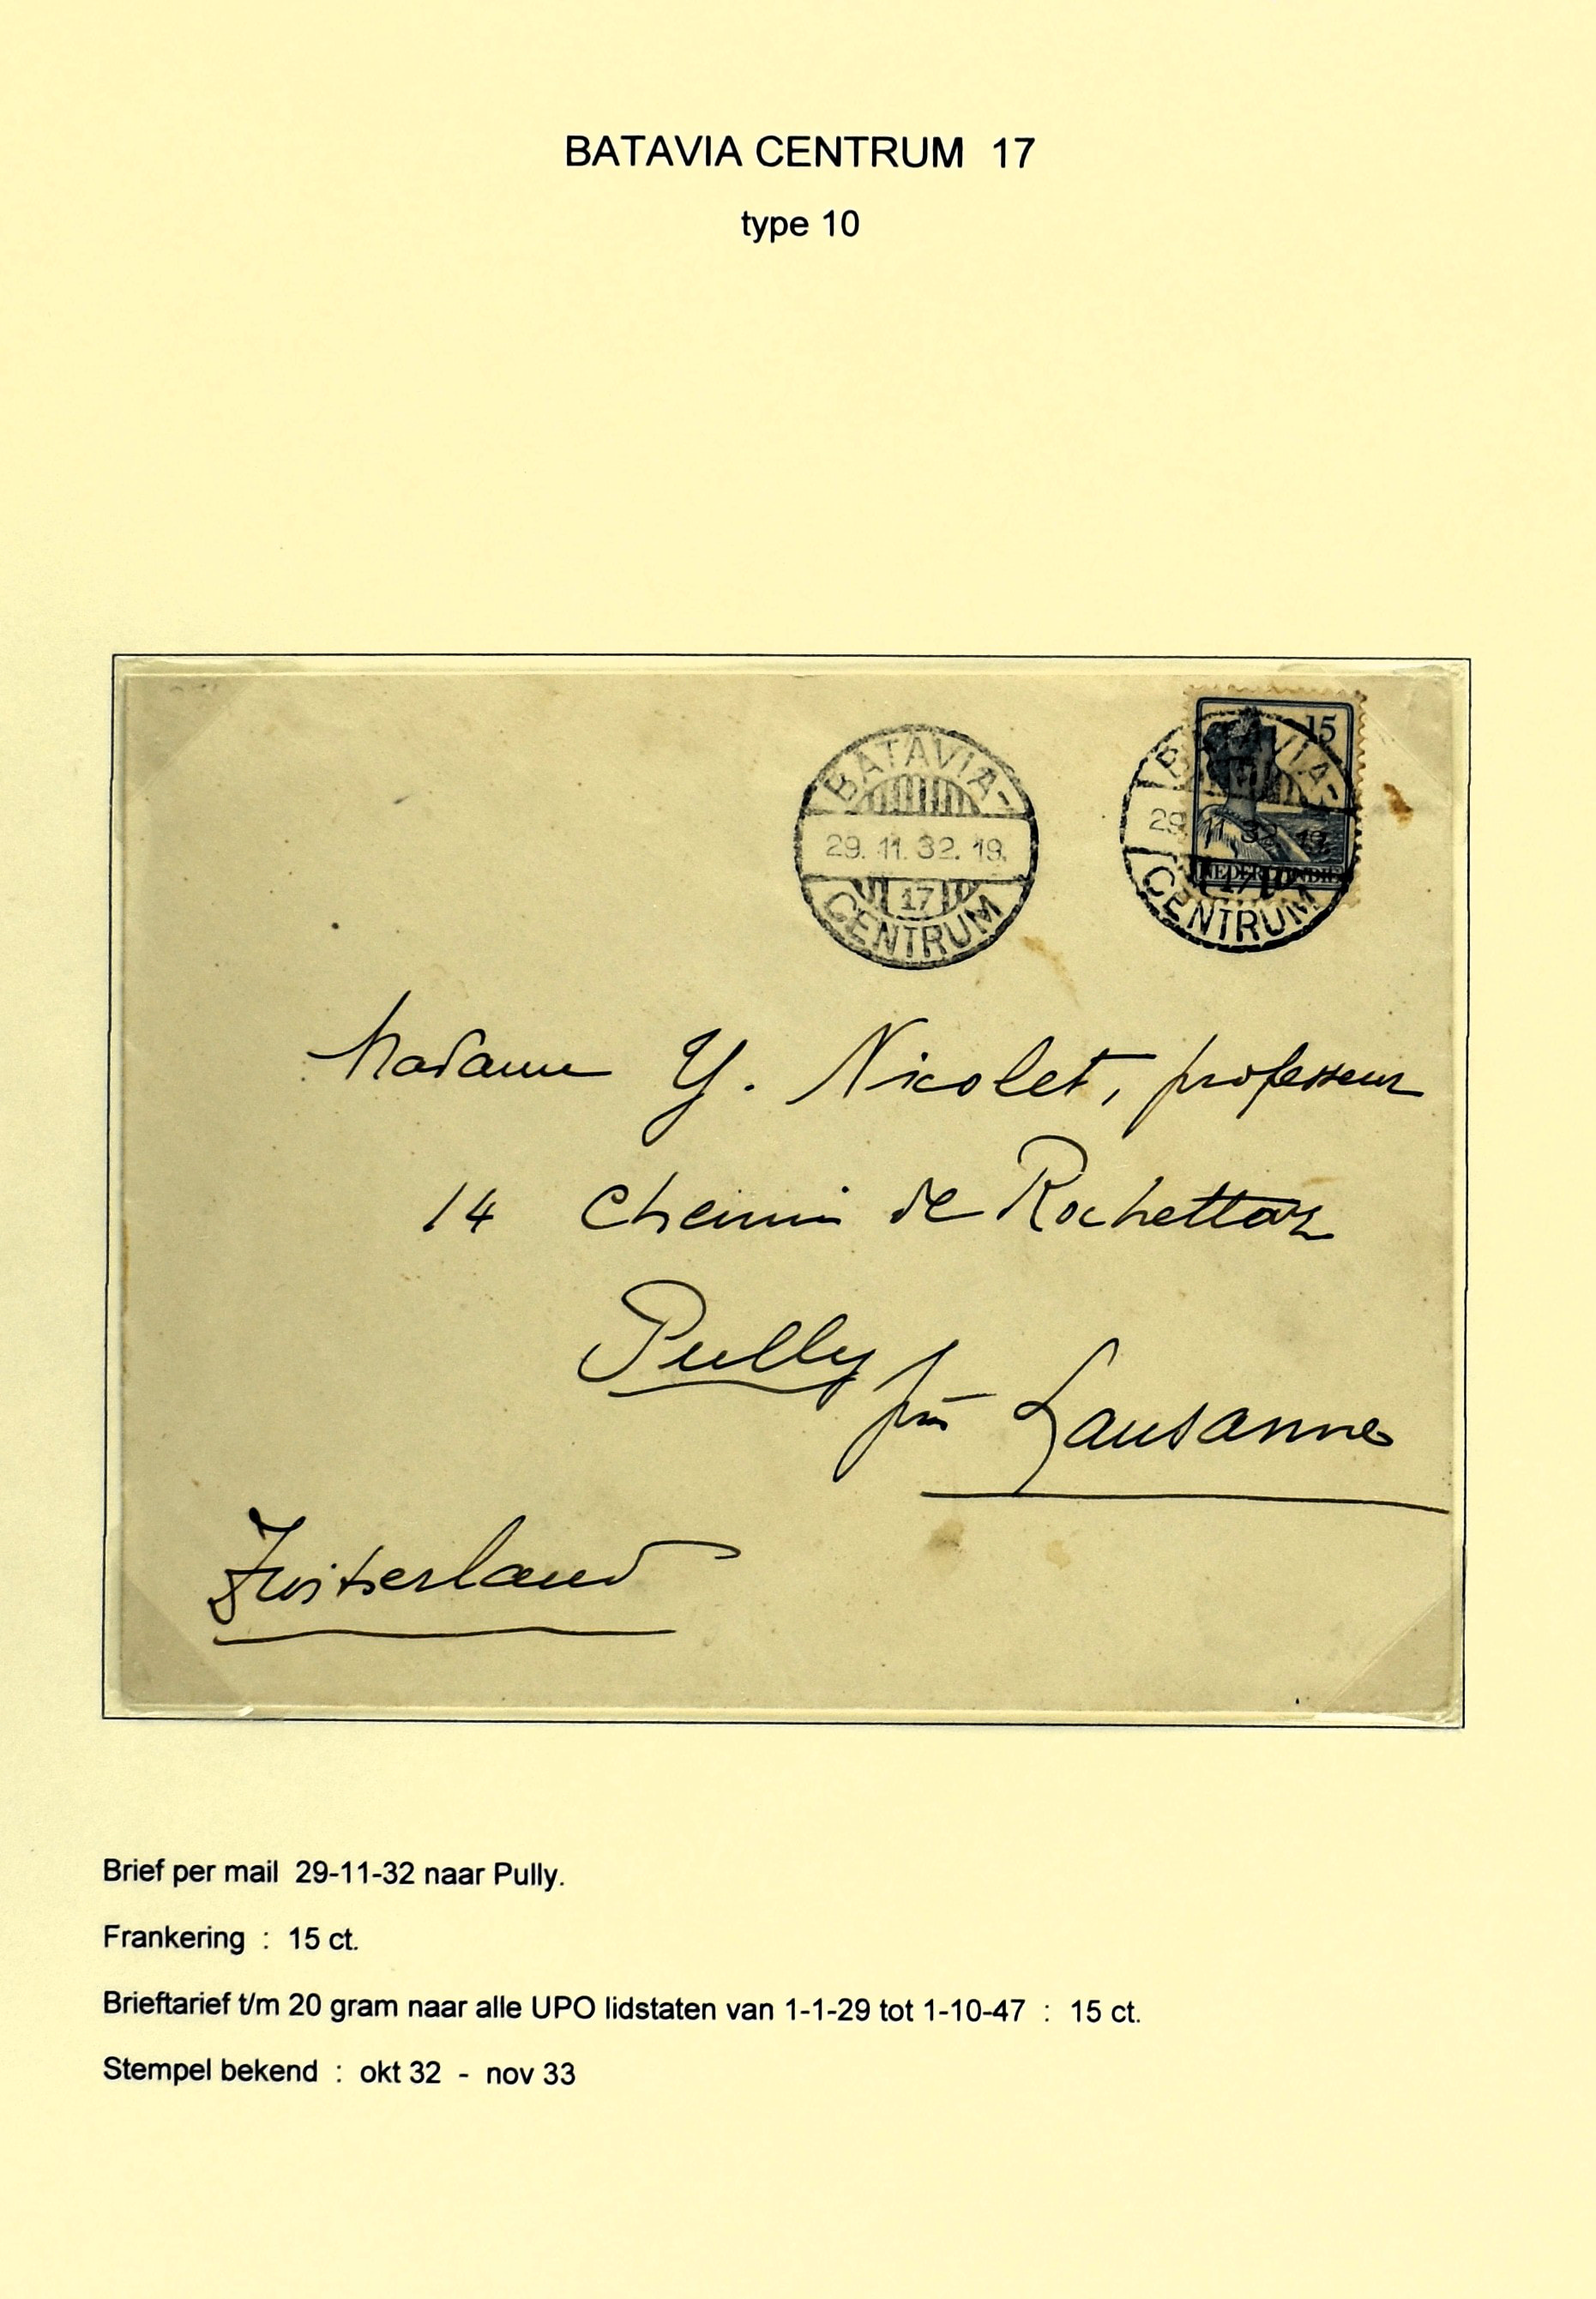 BATAVIA CENTRUM 17
type 10
15
BATAVIA-
29. 11. 32. 19.
17
CENTRUM
BATAVIA-
29. 11 32. 19.
17
CENTRUM
Madame Y. Nicolet, professeur
14 Chemin de Rochettaz
Pully près Lausanne
Zwitserland
Brief per mail 29-11-32 naar Pully.
Frankering : 15 ct.
Brieftarief t/m 20 gram naar alle UPO lidstaten van 1-1-29 tot 1-10-47 : 15 ct.
Stempel bekend : okt 32 - nov 33